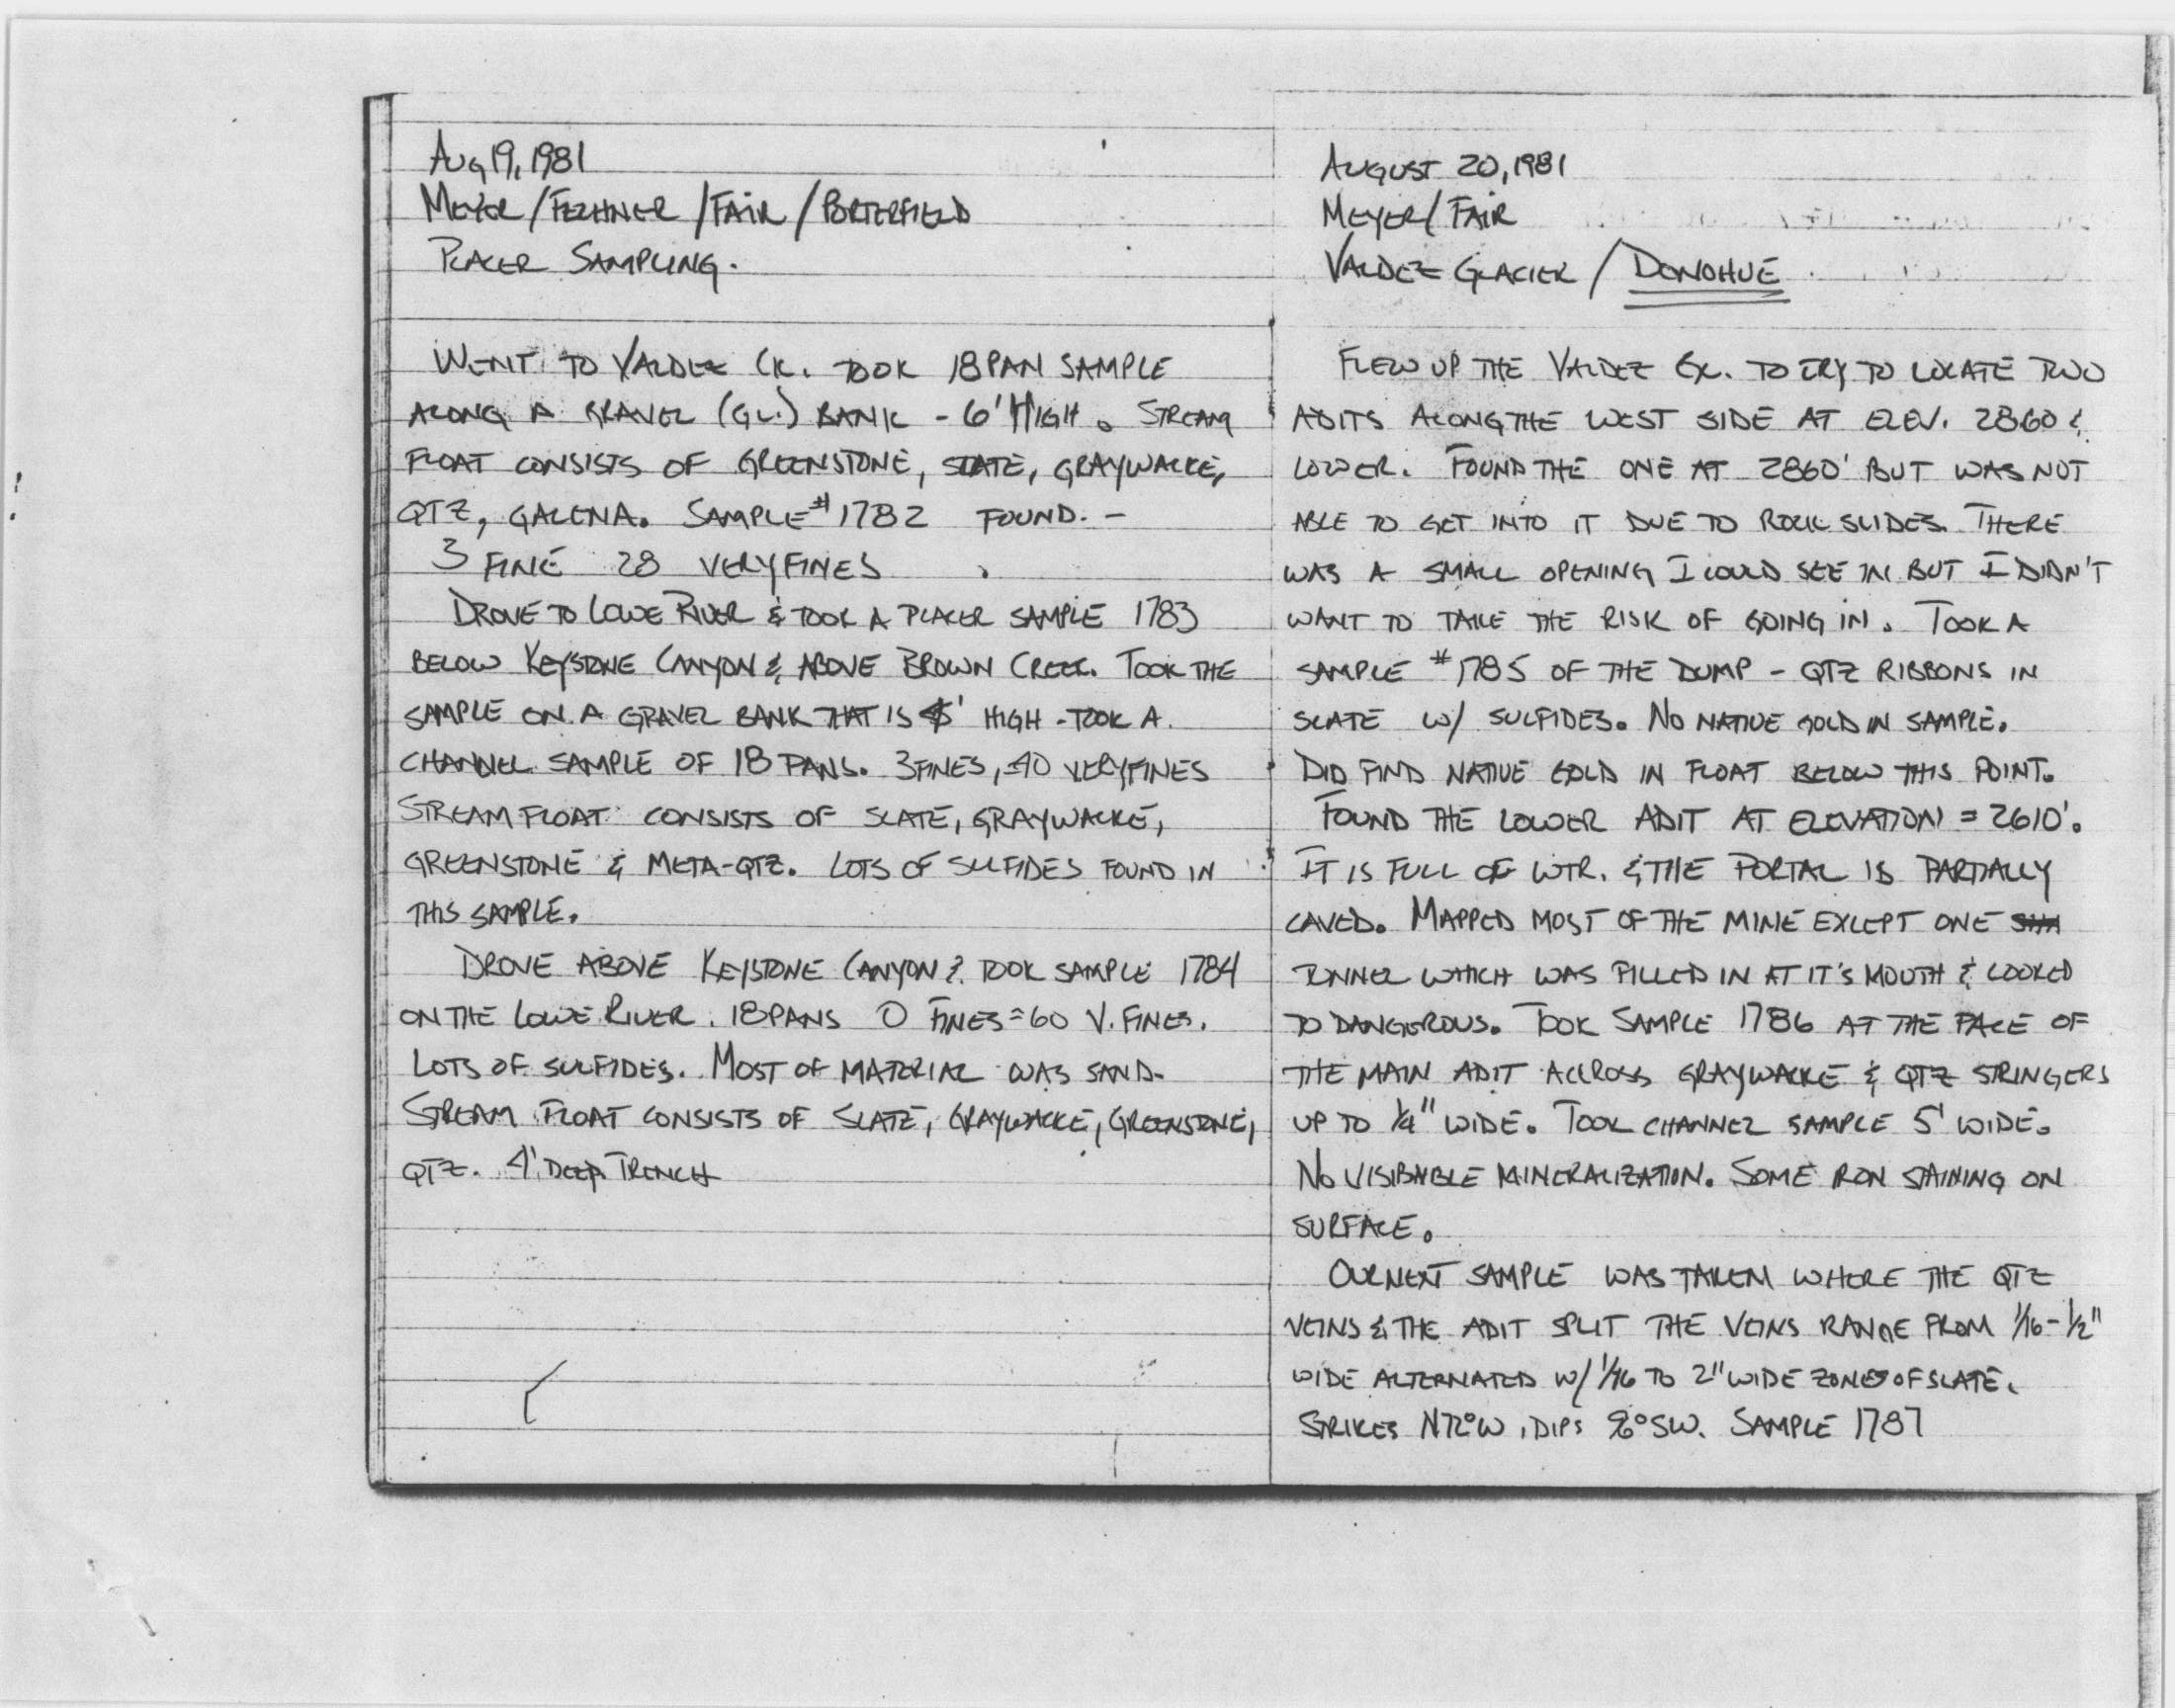 AUG 19, 1981
MEYER/FECHNER/FAIR/PORTERFIELD
PLACER SAMPLING.
WENT TO VALDEZ CK. TOOK 18 PAN SAMPLE
ALONG A GRAVEL (GL.) BANK - 6' HIGH. STREAM
FLOAT CONSISTS OF GREENSTONE, SLATE, GRAYWACKE,
QTZ, GALENA. SAMPLE # 1782 FOUND. -
3 FINE 28 VERY FINES
DROVE TO LOWE RIVER & TOOK A PLACER SAMPLE 1783
BELOW KEYSTONE CANYON & ABOVE BROWN CREEK. TOOK THE
SAMPLE ON A GRAVEL BANK THAT IS HIGH - TOOK A
CHANNEL SAMPLE OF 18 PANS. 3 FINES, 40 VERY FINES
STREAM FLOAT CONSISTS OF SLATE, GRAYWACKE,
GREENSTONE & META-QTZ. LOTS OF SULFIDES FOUND IN
THIS SAMPLE.
DROVE ABOVE KEYSTONE CANYON & TOOK SAMPLE 1784
ON THE LOWE RIVER. 18 PANS 0 FINES ≈ 60 V. FINES.
LOTS OF SULFIDES. MOST OF MATERIAL WAS SAND-
STREAM FLOAT CONSISTS OF SLATE, GRAYWACKE, GREENSTONE,
QTZ. 4' DEEP TRENCH
AUGUST 20, 1981
MEYER/FAIR
VALDEZ GLACIER / DONOHUE
FLEW UP THE VALDEZ GL. TO TRY TO LOCATE TWO
ADITS ALONG THE WEST SIDE AT ELEV. 2860 &
LOWER. FOUND THE ONE AT 2860' BUT WAS NOT
ABLE TO GET INTO IT DUE TO ROCK SLIDES. THERE
WAS A SMALL OPENING I COULD SEE IN BUT I DIDN'T
WANT TO TAKE THE RISK OF GOING IN. TOOK A
SAMPLE # 1785 OF THE DUMP - QTZ RIBBONS IN
SLATE W/ SULFIDES. NO NATIVE GOLD IN SAMPLE.
DID FIND NATIVE GOLD IN FLOAT BELOW THIS POINT.
FOUND THE LOWER ADIT AT ELEVATION = 2610'.
IT IS FULL OF WTR. & THE PORTAL IS PARTIALLY
CAVED. MAPPED MOST OF THE MINE EXCEPT ONE
TUNNEL WHICH WAS FILLED IN AT IT'S MOUTH & LOOKED
TO DANGEROUS. TOOK SAMPLE 1786 AT THE FACE OF
THE MAIN ADIT ACCROSS GRAYWACKE & QTZ STRINGERS
UP TO 1/4" WIDE. TOOK CHANNEL SAMPLE 5' WIDE.
NO VISIBABLE MINERALIZATION. SOME IRON STAINING ON
SURFACE.
OUR NEXT SAMPLE WAS TAKEN WHERE THE QTZ
VEINS & THE ADIT SPLIT THE VEINS RANGE FROM 1/16 - 1/2"
WIDE ALTERNATED W/ 1/16 TO 2" WIDE ZONES OF SLATE.
STRIKES N72°W, DIPS SW. SAMPLE 1787